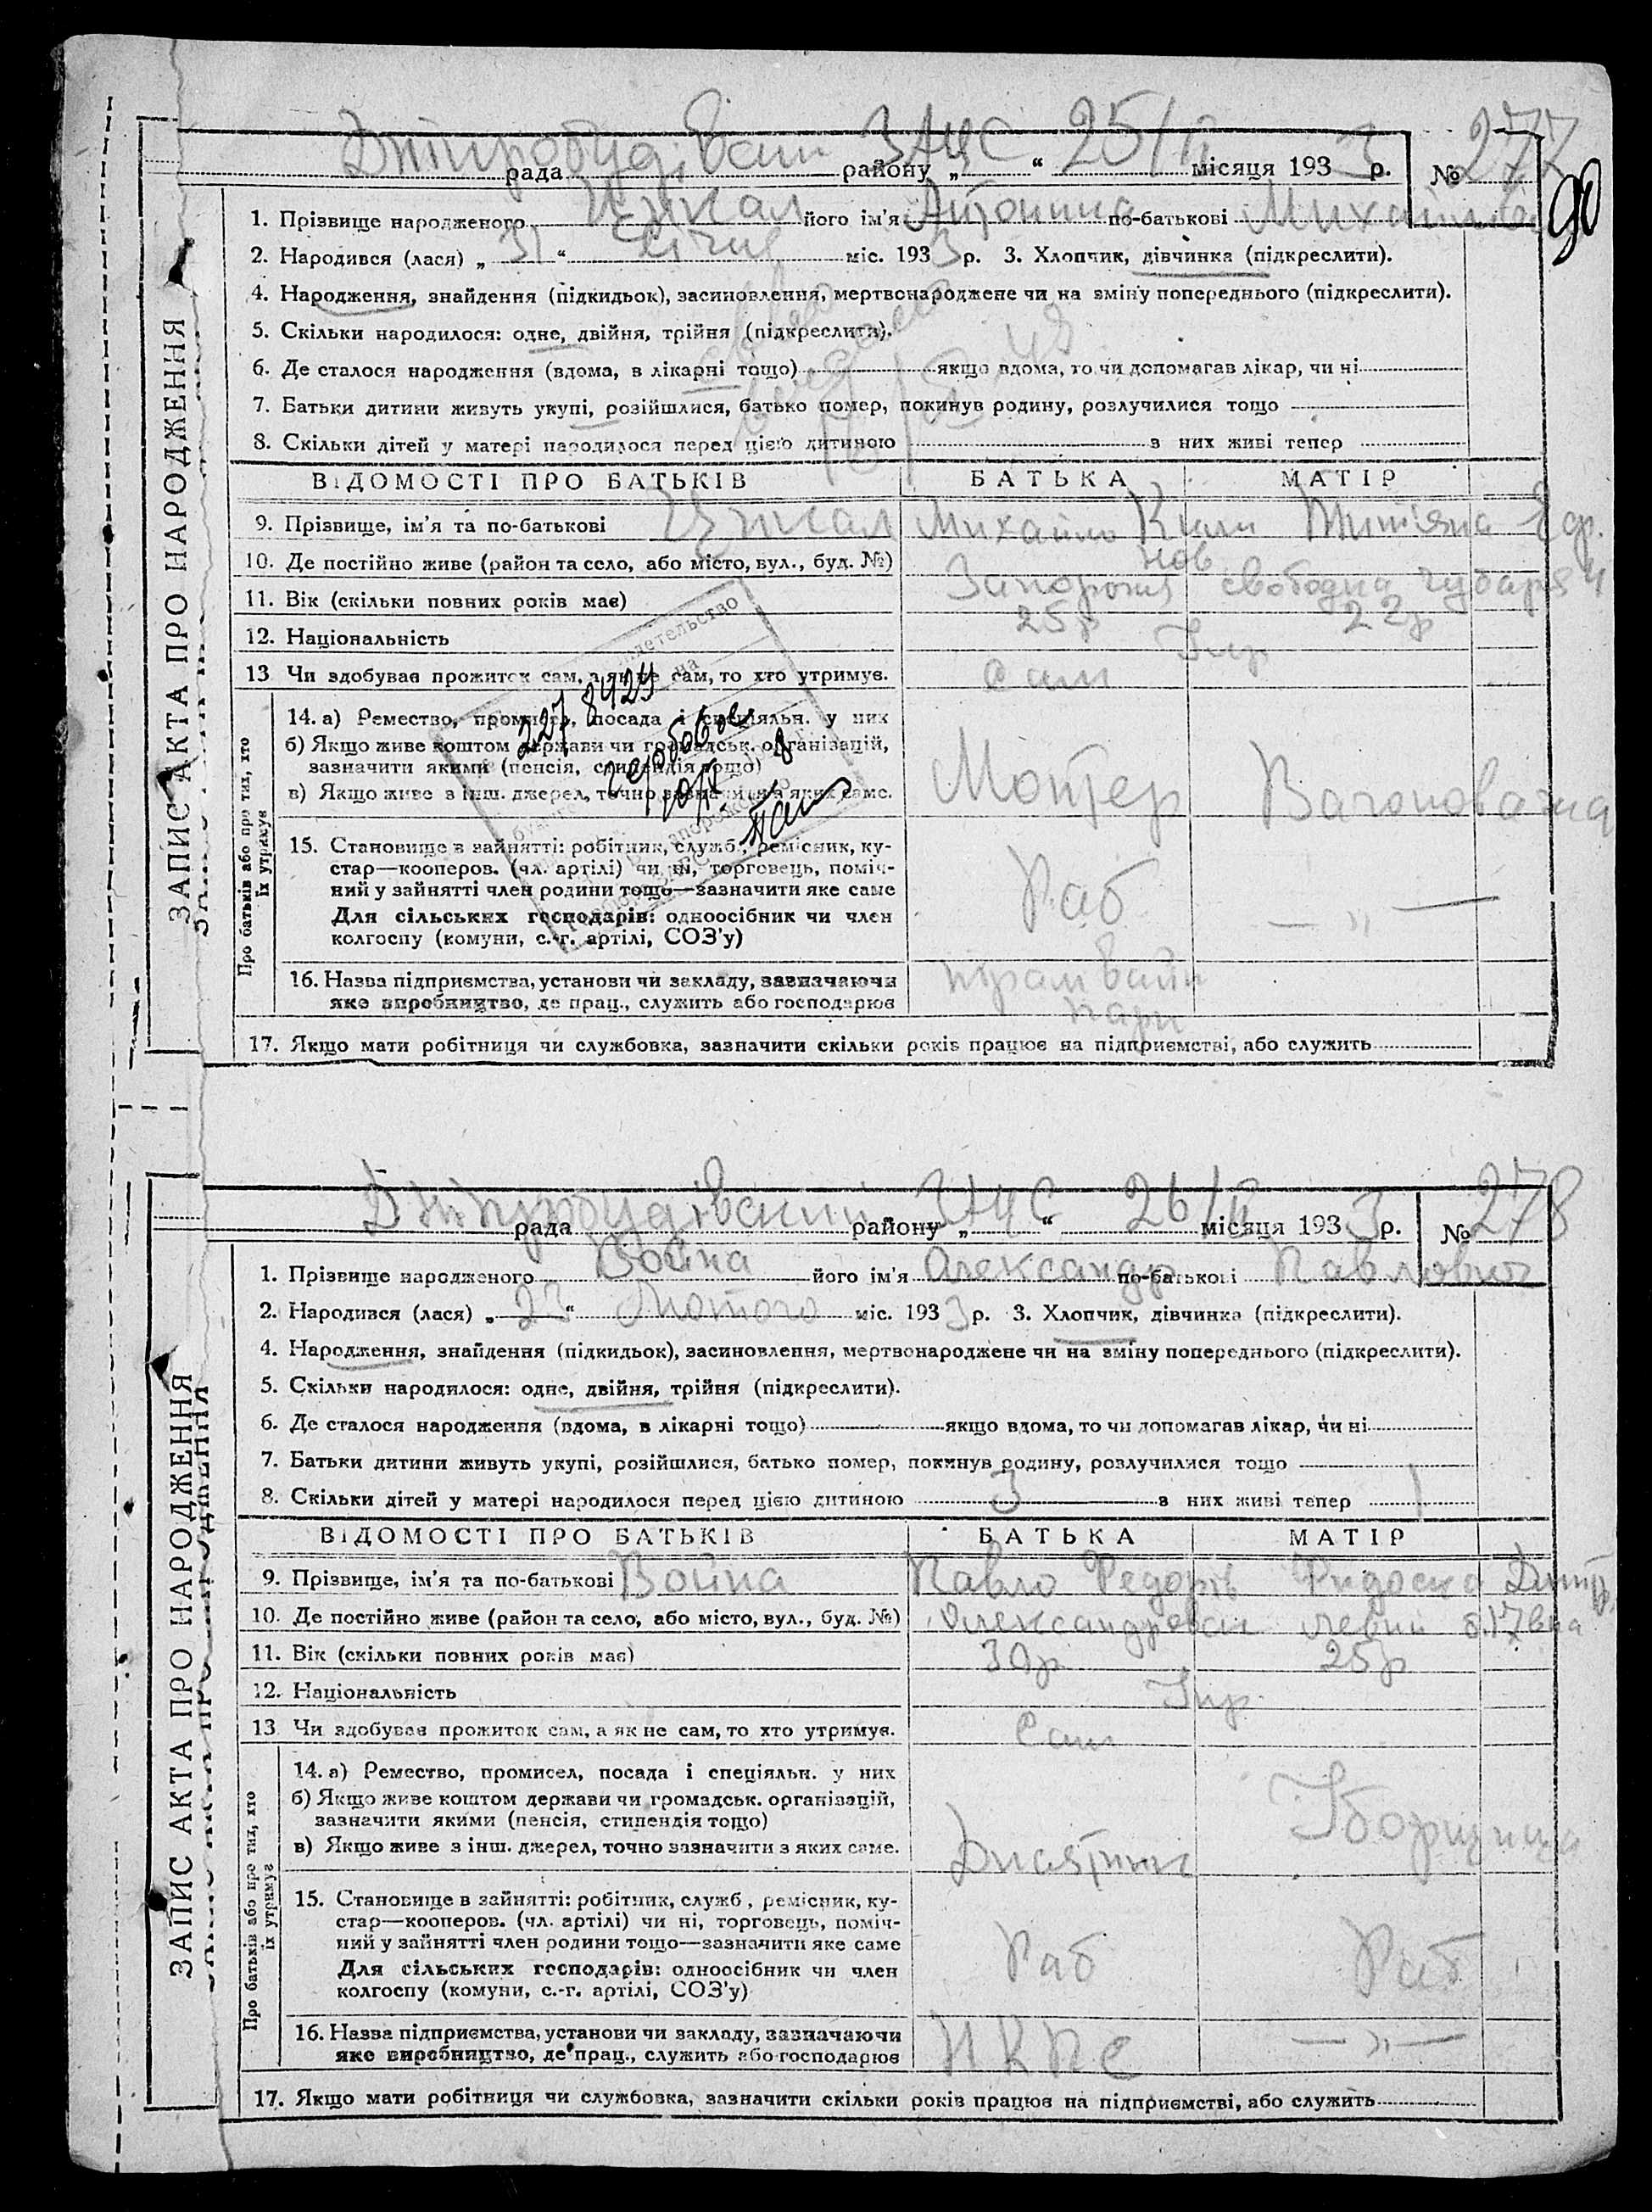 Дніпробудівськ ЗАЦС 25/II 3 277
рада району „ “ місяця 193 р. №
90
1. Прізвище народженого його ім'я Антонина по-батькові Михайлов
2. Народився (лася) „ 31 “ січня міс. 193 3 р. 3. Хлопчик, дівчинка (підкреслити).
4. Народження, знайдення (підкидьок), засиновлення, мертвонароджене чи на зміну попереднього (підкреслити).
5. Скільки народилося: одне, двійня, трійня (підкреслити).
6. Де сталося народження (вдома, в лікарні тощо) якщо вдома, то чи допомагав лікар, чи ні
7. Батьки дитини живуть укупі, розійшлися, батько помер, покинув родину, розлучилися тощо
8. Скільки дітей у матері народилося перед цією дитиною з них живі тепер
ВІДОМОСТІ ПРО БАТЬКІВ БАТЬКА МАТІР
9. Прізвище, ім'я та по-батькові Михайло
10. Де постійно живе (район та село, або місто, вул., буд. №) свободна Чубаря 4
11. Вік (скільки повних років має) 25р 22р
12. Національність Укр
13 Чи здобуває прожиток сам, а як не сам, то хто утримує. Сам
Про батьків або про тих, хто їх утримує
14. а) Ремество, промисел, посада і спеціяльн. у них
б) Якщо живе коштом держави чи громадськ. організацій,
зазначити якими (пенсія, стипендія тощо)
в) Якщо живе з інш. джерел, точно зазначити з яких саме.
Монтер Вагоноважа
15. Становище в зайнятті: робітник, служб., ремісник, ку-
стар—кооперов. (чл. артілі) чи ні, торговець, поміч-
ний у зайнятті член родини тощо—зазначити яке саме
Для сільських господарів: одноосібник чи член
колгоспу (комуни, с.-г. артілі, СОЗ'у)
Раб — „ —
16. Назва підприємства, установи чи закладу, зазначаючи
яке виробництво, де прац., служить або господарює
трамвайн
парк
17. Якщо мати робітниця чи службовка, зазначити скільки років працює на підприємстві, або служить
ЗАПИС АКТА ПРО НАРОДЖЕННЯ
Дніпробудівский ЗАЦС 26/II 3 278
рада району „ “ місяця 193 р. №
1. Прізвище народженого Война його ім'я Олександр по-батькові Павлович
2. Народився (лася) „ 23 “ Лютого міс. 193 3 р. 3. Хлопчик, дівчинка (підкреслити).
4. Народження, знайдення (підкидьок), засиновлення, мертвонароджене чи на зміну попереднього (підкреслити).
5. Скільки народилося: одне, двійня, трійня (підкреслити).
6. Де сталося народження (вдома, в лікарні тощо) якщо вдома, то чи допомагав лікар, чи ні
7. Батьки дитини живуть укупі, розійшлися, батько помер, покинув родину, розлучилися тощо
8. Скільки дітей у матері народилося перед цією дитиною 3 з них живі тепер 1
ВІДОМОСТІ ПРО БАТЬКІВ БАТЬКА МАТІР
9. Прізвище, ім'я та по-батькові Война Павло Федорів
10. Де постійно живе (район та село, або місто, вул., буд. №) б. 17
11. Вік (скільки повних років має) 30р 25р
12. Національність Укр.
13 Чи здобуває прожиток сам, а як не сам, то хто утримує. Сам
Про батьків або про тих, хто їх утримує
14. а) Ремество, промисел, посада і спеціяльн. у них
б) Якщо живе коштом держави чи громадськ. організацій,
зазначити якими (пенсія, стипендія тощо)
в) Якщо живе з інш. джерел, точно зазначити з яких саме.
Уборщица
15. Становище в зайнятті: робітник, служб., ремісник, ку-
стар—кооперов. (чл. артілі) чи ні, торговець, поміч-
ний у зайнятті член родини тощо—зазначити яке саме
Для сільських господарів: одноосібник чи член
колгоспу (комуни, с.-г. артілі, СОЗ'у)
Раб Раб
16. Назва підприємства, установи чи закладу, зазначаючи
яке виробництво, де прац., служить або господарює
НКПС — „ —
17. Якщо мати робітниця чи службовка, зазначити скільки років працює на підприємстві, або служить
ЗАПИС АКТА ПРО НАРОДЖЕННЯ